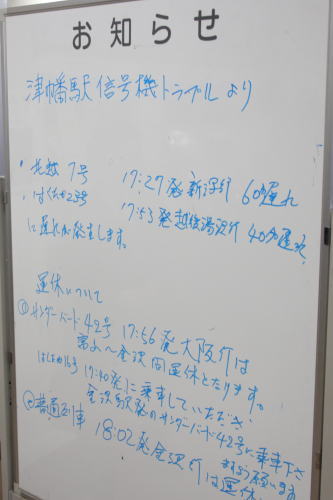 お知らせ
津幡駅信号機トラブルより
・北越7号 17:27発新潟行 60分遅れ
・はくたか23号 17:53発越後湯沢行 40分遅れ
に遅れが発生します。
運休について
①サンダーバード42号 17:56発大阪行は
富山〜金沢間運休となります。
はくたか16号 17:40発に乗車していただき
金沢駅発のサンダーバード42号に乗車下さ
ますよう願います
②普通列車 18:02発金沢行は運休